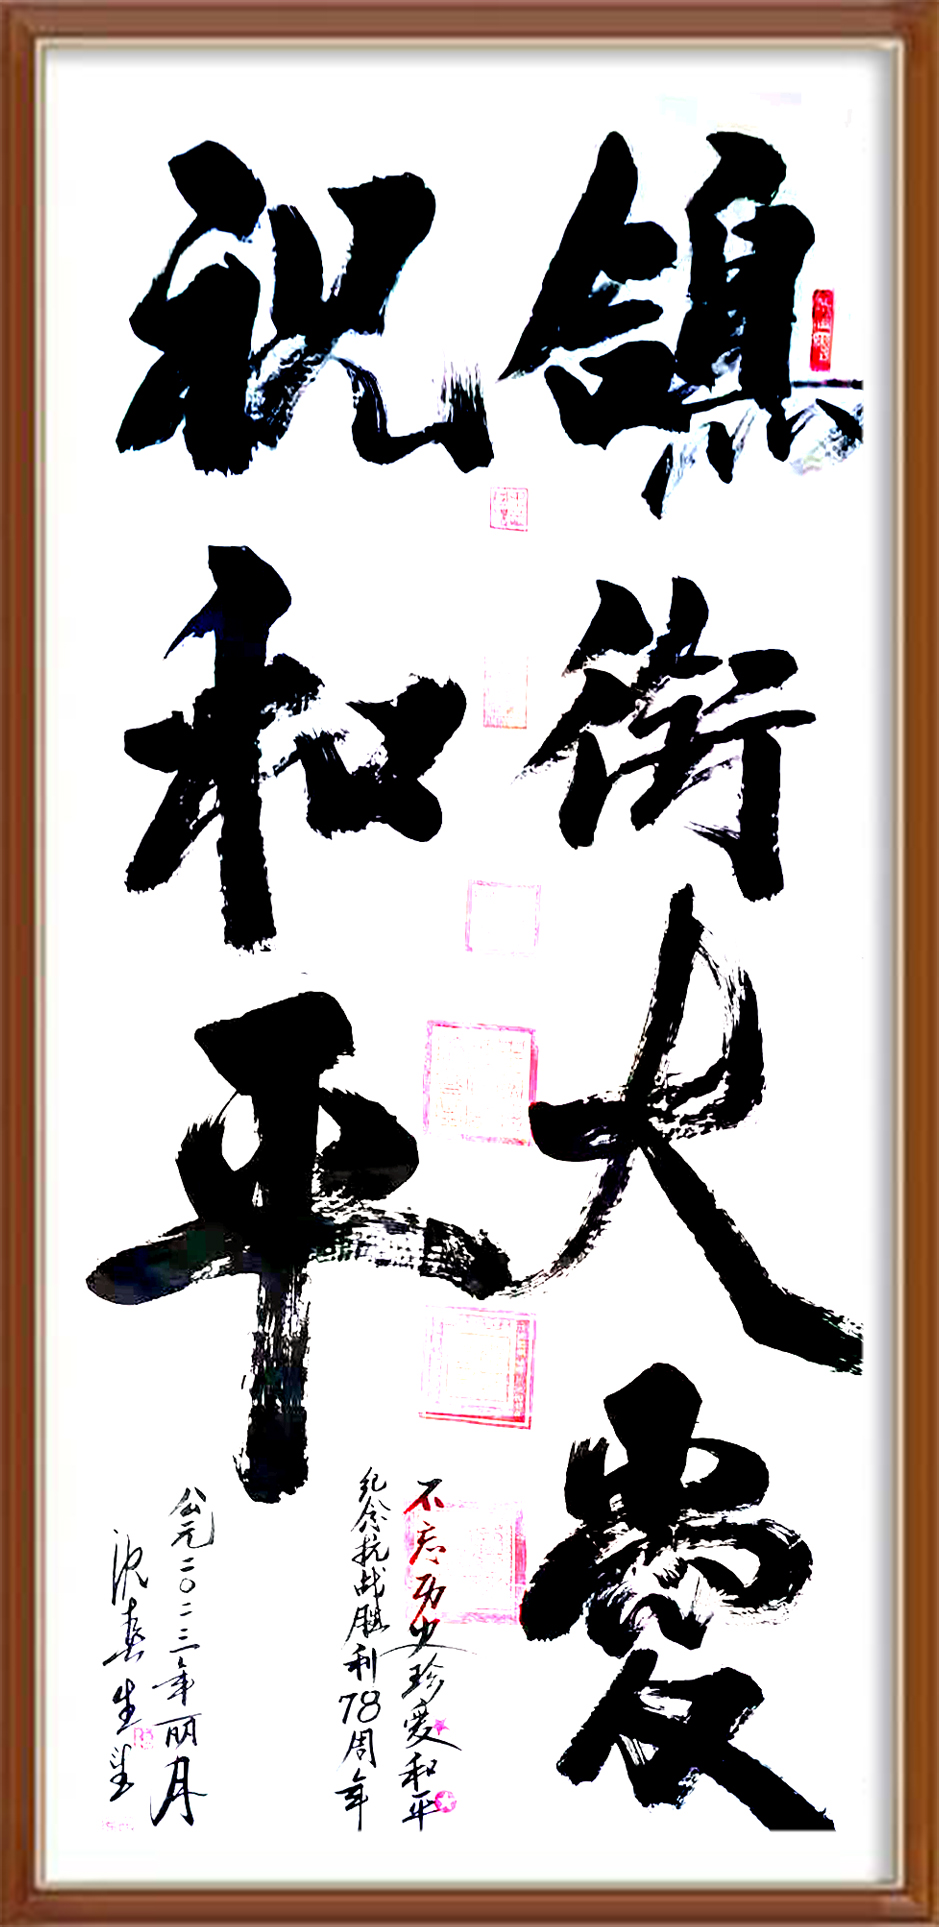 鴿銜大愛
祝和平
不忘历史珍爱和平
纪念抗战胜利78周年
公元二〇二三年丽月
沈春生坐